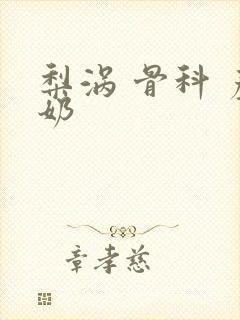 梨涡 骨科
奶
章孝慈